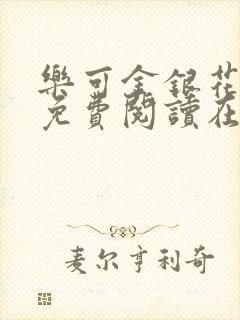 樂可金銀花
免費閱讀在
麦尔亨利奇